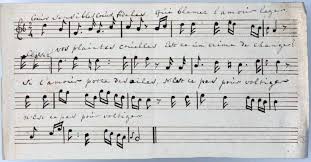 Cœurs sensibles, Cœurs fideles Qui blamez l'amour leger
vos plaintes cruelles Est ce un crime de changer
Si l'amour porte des ailes, n'est ce pas pour voltiger
n'est ce pas pour voltiger